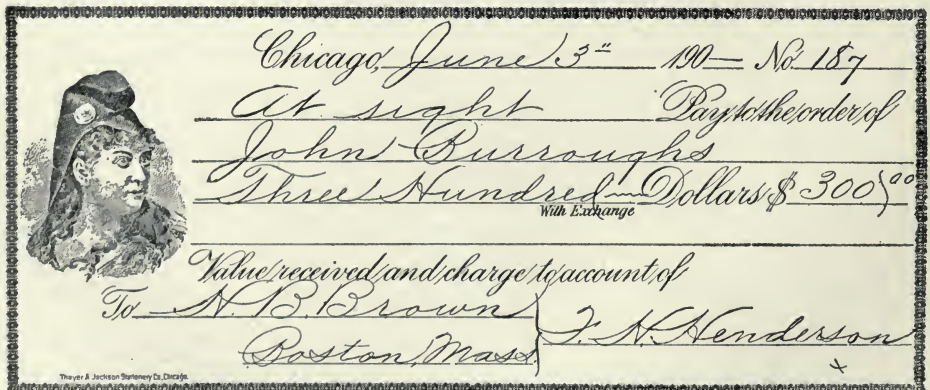 Chicago, June 3" 190— No. 187
At sight Pay to the order of
John Burroughs
Three Hundred — Dollars $300 00
With Exchange
Value received and charge to account of
To N. B. Brown
Boston, Mass. F. N. Henderson
Thayer & Jackson Stationery Co., Chicago.